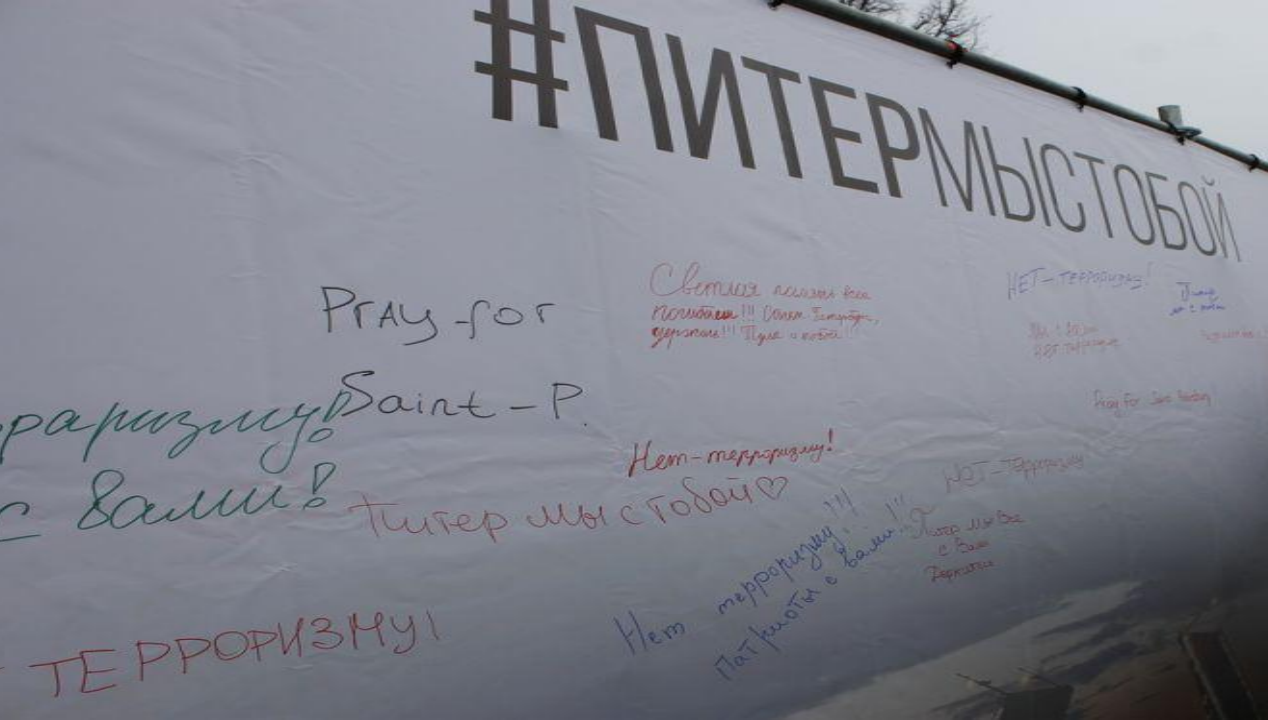 #ПИТЕРМЫСТОБОЙ
Светлая память всем
погибшим!!! Санкт Петербург,
держись!!!
НЕТ-терроризму!
Питер
мы с тобой
Pray for
Saint-P.
Pray For
раризму!
с вами!
Нет-терроризму!
Питер мы с тобой♡
НЕТ-терроризму
Питер мы все
с Вами
Держитесь
Нет терроризму!!!
Патриоты с вами!!!
ТЕРРОРИЗМУ!